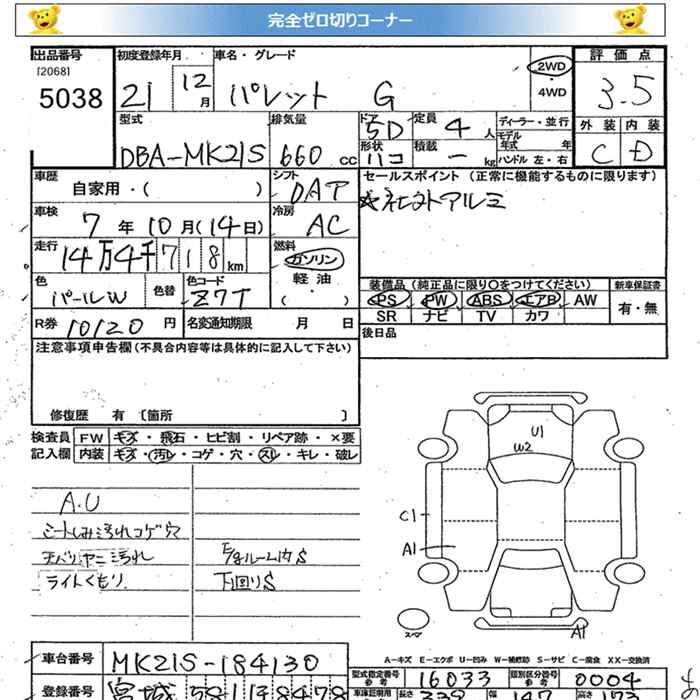 完全ゼロ切りコーナー
出品番号
[2068]
5038
初度登録年月
21 12月
車名・グレード
パレット G
2WD
・
4WD
評価点
3.5
外装 内装
C D
型式
DBA-MK21S
排気量
660 cc
ドア
5D
形状
ハコ
定員
4 人
積載
ー kg
ディーラー・並行
モデル
年式 年
ハンドル 左・右
車歴
自家用・( )
シフト
DAT
セールスポイント (正常に機能するものに限ります)
☆社外アルミ
車検
7 年 10 月 (14日)
冷房
AC
走行
14万4千718 km
燃料
ガソリン
軽油
・
( )
色
パールW
色替
色コード
Z7T
装備品 (純正品に限り〇をつけてください)
PS PW ABS エアB AW
SR ナビ TV カワ
新車保証書
有・無
R券 10120 円
名変通知期限 月 日
後日品
注意事項申告欄 (不具合内容等は具体的に記入して下さい)
修復歴 有 〔箇所 〕
検査員
記入欄
FW キズ・飛石・ヒビ割・リペア跡・×要
内装 キズ・汚レ・コゲ・穴・スレ・キレ・破レ
A.U
シートしみ汚れコゲ穴
天バリヤニ汚れ
ライトくもり
下回りS
U1
W2
C1
A1
A1
スマ
A-キズ E-エクボ U-凹み W-補修跡 S-サビ C-腐食 XX-交換済
車台番号 MK21S-184130
型式指定番号
参考
16033
類別区分番号
参考
0004
登録番号 宮城 581
車庫証明用
長さ 339 幅 147 高さ